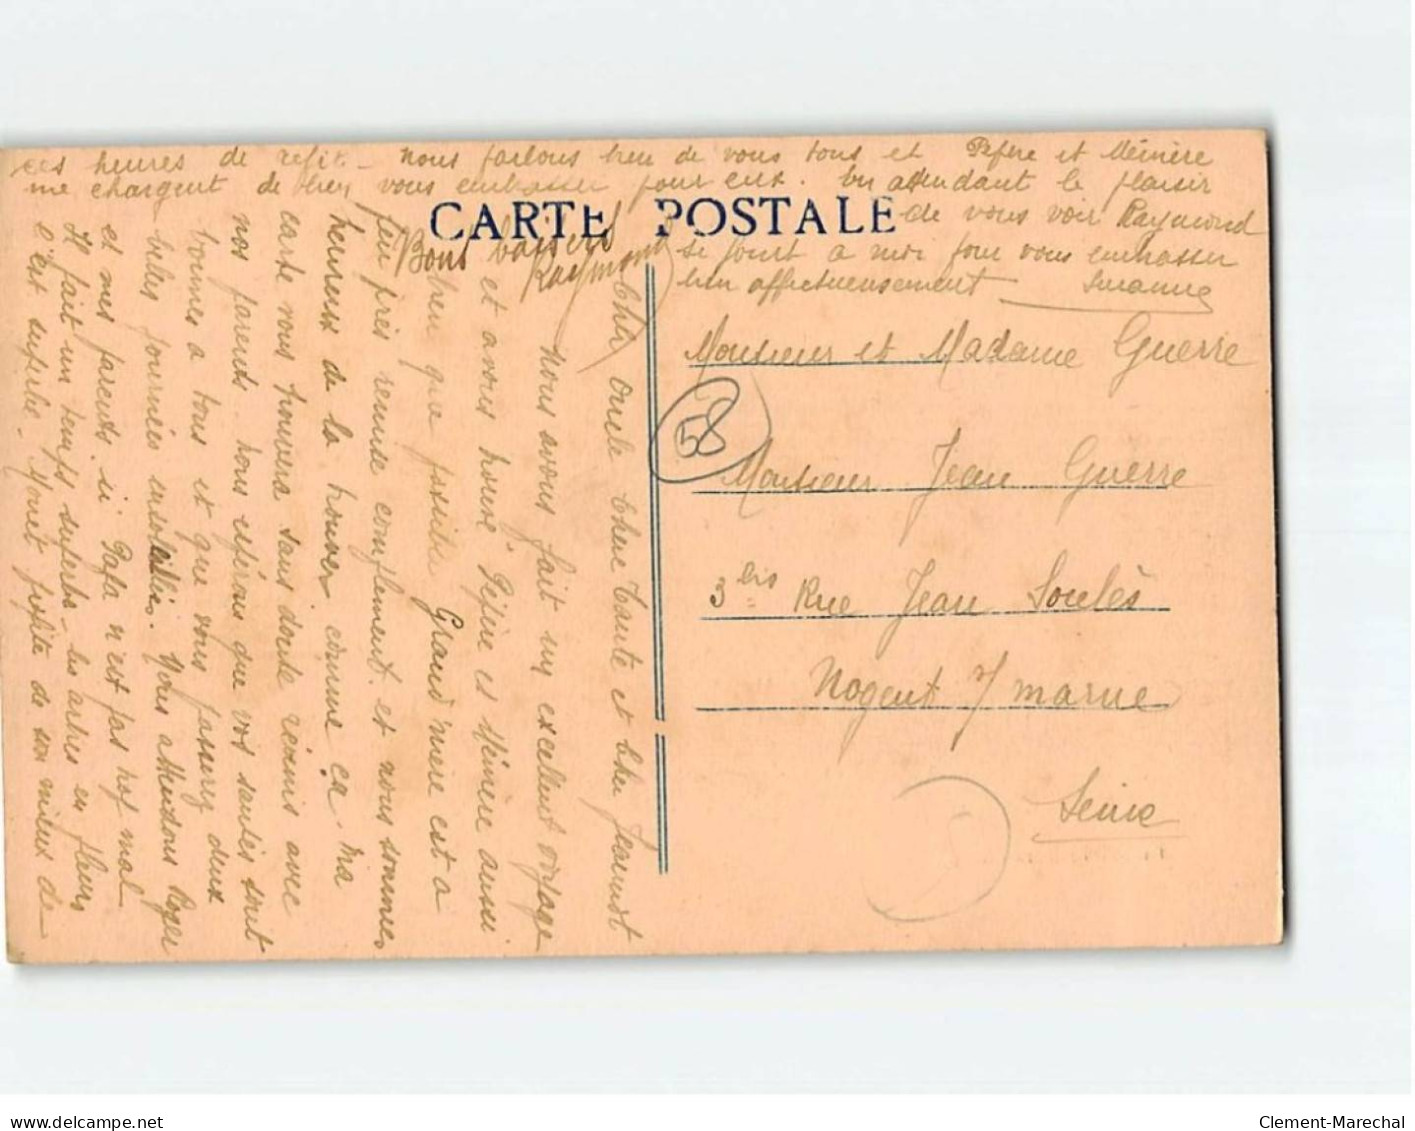 CARTE POSTALE
Cher Oncle Chère Tante et cher Jeannot
Nous avons fait un excellent voyage
et avons trouvé Pépère et Mémère aussi
bien que possible Grand'mère est à
peu près remise complètement et nous sommes
heureux de la trouver comme ça. Ma
carte vous trouvera sans doute réunis avec
nos parents. nous espérons que vos santés sont
bonnes à tous et que vous passerez deux
belles journées ensoleillées. Nous attendons Roger
et mes parents si Papa n'est pas trop mal
Il fait un temps superbe - les arbres en fleurs
c'est superbe. Monet profite de son mieux de
ces heures de répit - nous parlons bien de vous tous et Pépère et Mémère
me chargent de bien vous embrasser pour eux. En attendant le plaisir
de vous voir Raymond
se joint à moi pour vous embrasser
bien affectueusement Suzanne
Bons baisers
Raymond
Monsieur et Madame Guerre
58
Monsieur Jean Guerre
3 bis Rue Jean Soulès
Nogent s/ marne
Seine
delcampe.net
Clement-Marechal